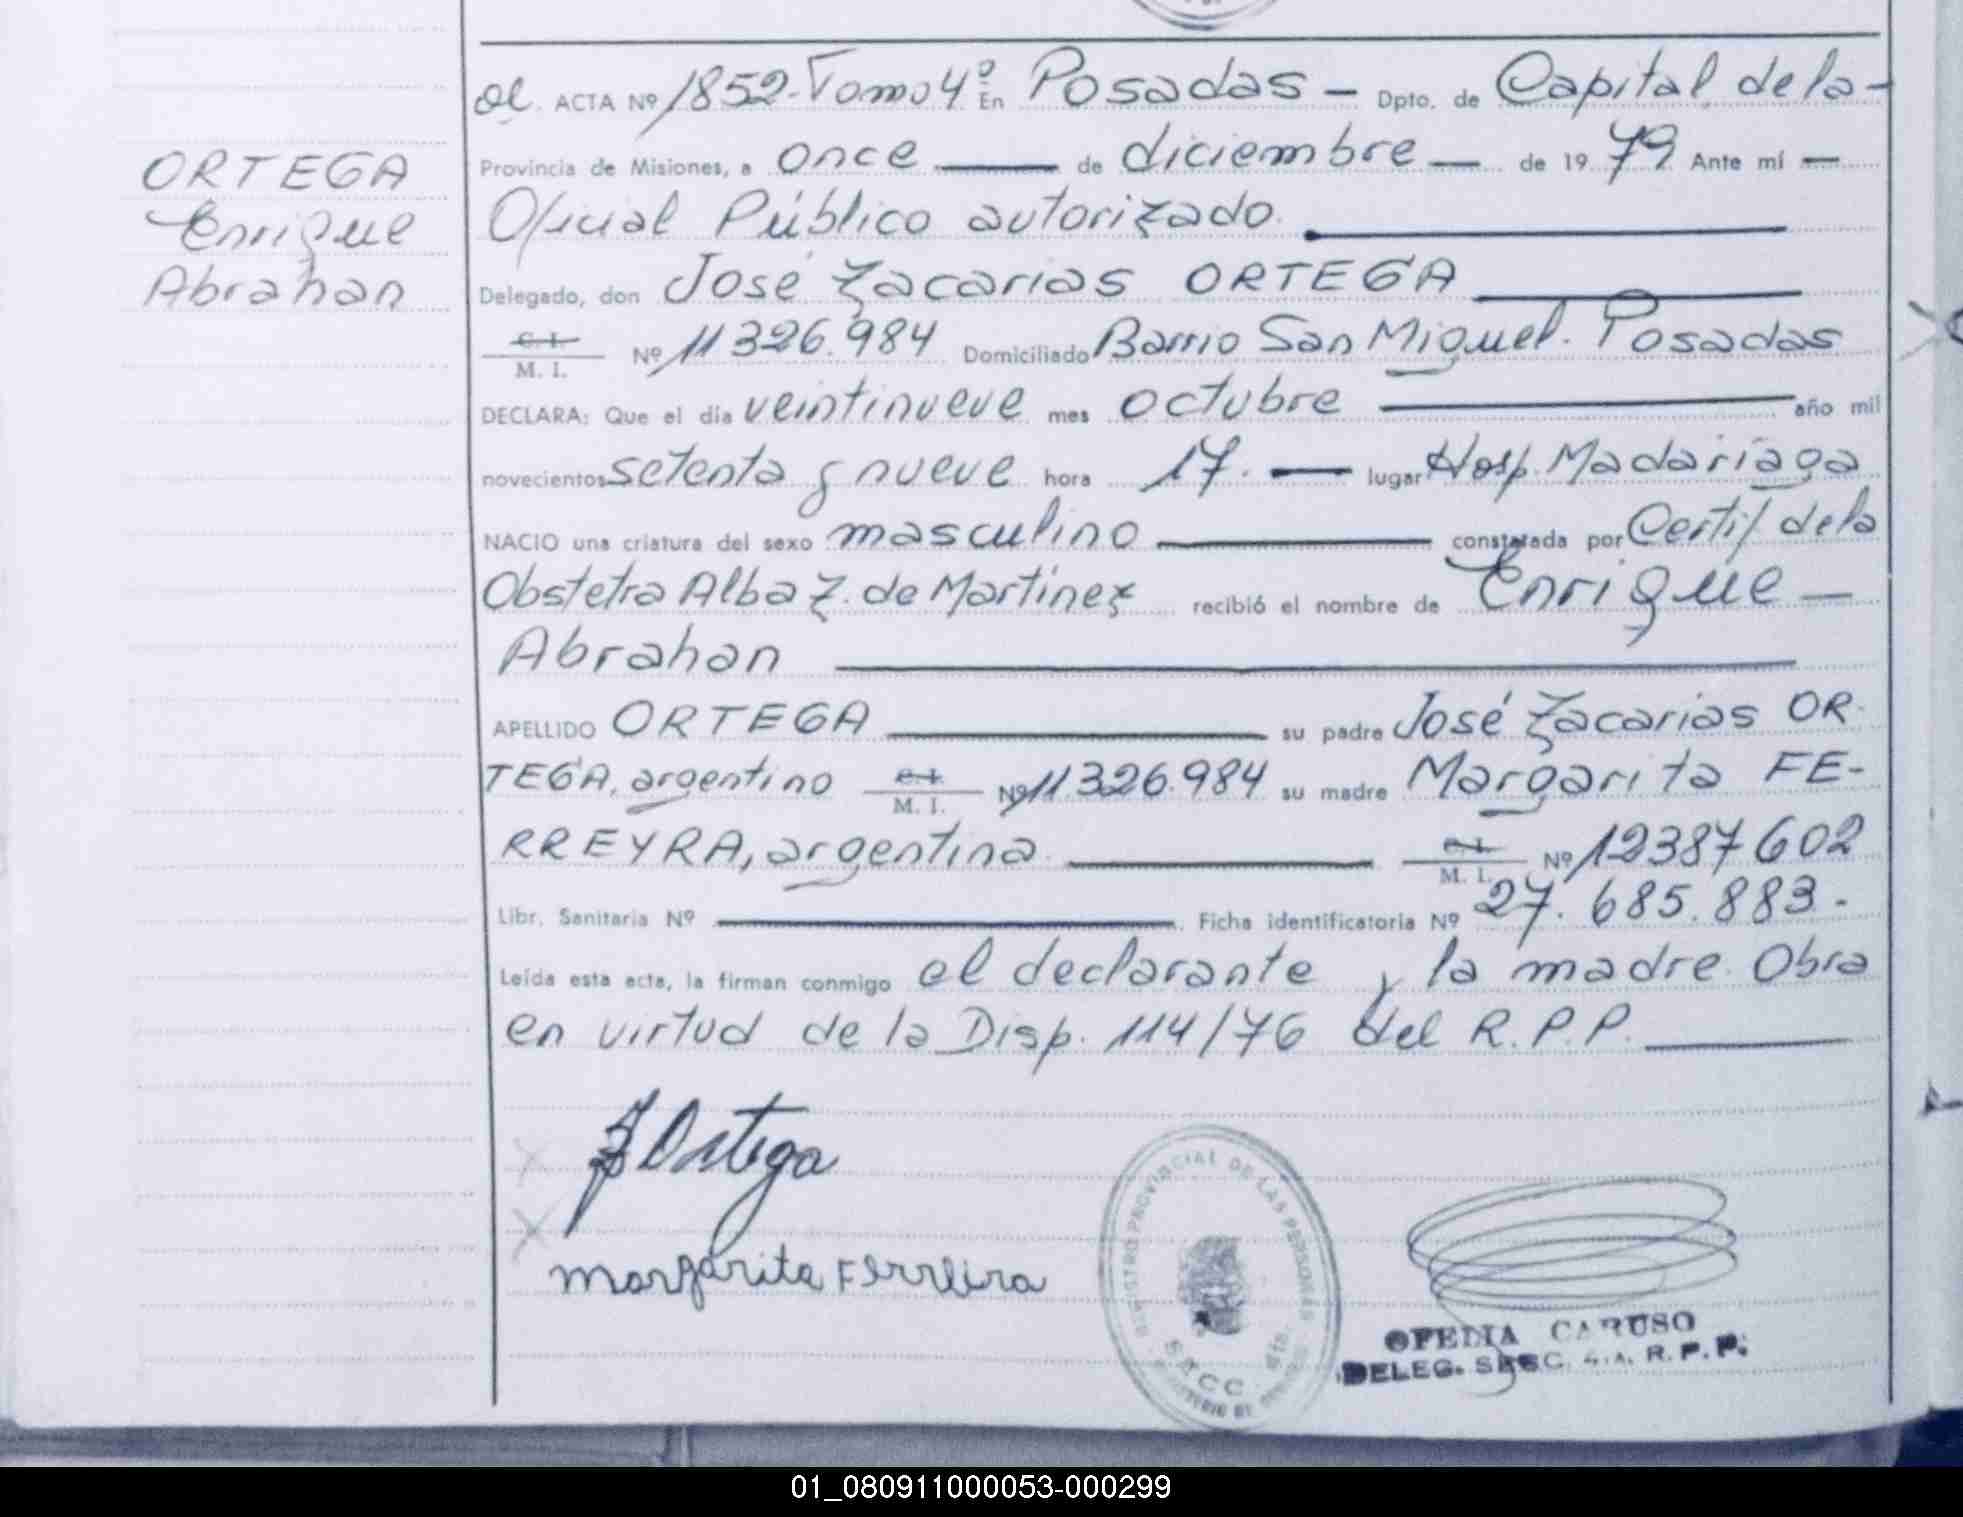 ORTEGA
Enrique
Abrahan
ACTA Nº 1852-Tomo 4º En Posadas - Dpto. de Capital de la-
Provincia de Misiones, a once de diciembre de 1979 Ante mí
Oficial Público autorizado.
Delegado, don José Zacarias ORTEGA
C. I.
M. I. Nº 11326.984 Domiciliado Barrio San Miguel. Posadas
DECLARA: Que el día veintinueve mes octubre año mil
novecientos setenta y nueve hora 17. lugar Hosp. Madariaga
NACIO una criatura del sexo masculino constatada por Certif de la
Obstetra Alba Z. de Martinez recibió el nombre de Enrique
Abrahan
APELLIDO ORTEGA su padre José Zacarias OR-
TEGA, argentino C. I. M. I. Nº 11.326.984 su madre Margarita FE-
RREYRA, argentina C. I. M. I. Nº 12387602
Libr. Sanitaria Nº Ficha identificatoria Nº 27.685.883.-
Leída esta acta, la firman conmigo el declarante y la madre. Obra
en virtud de la Disp. 114/76 del R.P.P.
Z Ortega
Margarita Ferreira
REGISTRO PROVINCIAL DE LAS PERSONAS
SECC. 4ta.
OFELIA CARUSO
DELEG. SECC. 4.A. R.P.P.
01_080911000053-000299